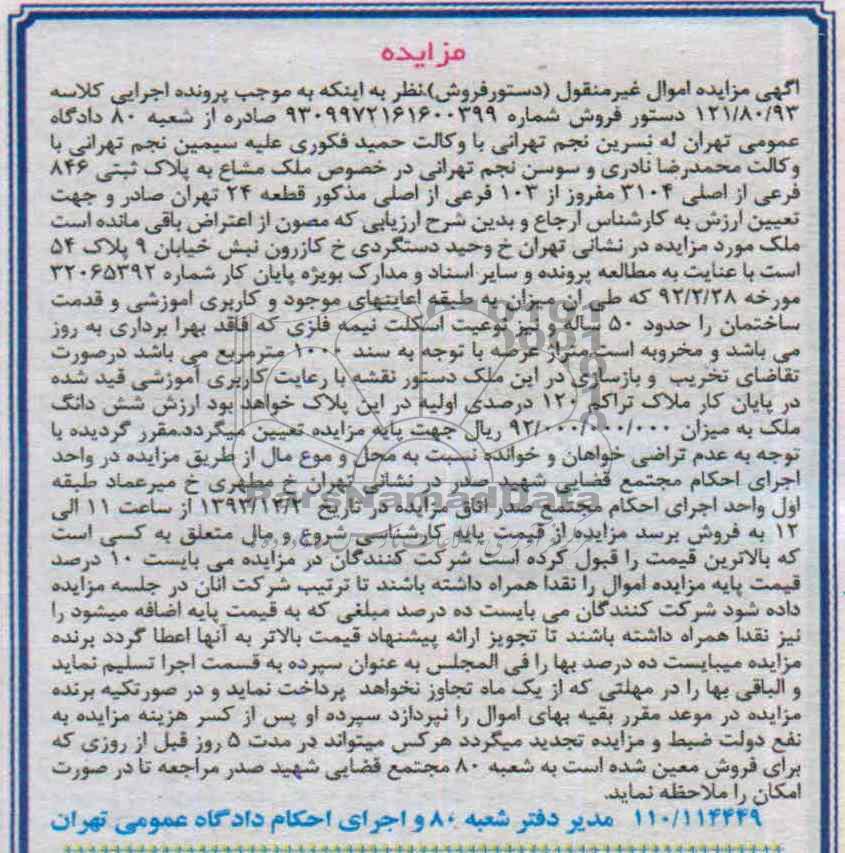 مزایده
اگهی مزایده اموال غیرمنقول (دستورفروش)نظر به اینکه به موجب پرونده اجرایی کلاسه
۱۲۱/۸۰/۹۳ دستور فروش شماره ۹۳۰۹۹۷۲۱۶۱۶۰۰۳۹۹ صادره از شعبه ۸۰ دادگاه
عمومی تهران له نسرین نجم تهرانی با وکالت حمید فکوری علیه سیمین نجم تهرانی با
وکالت محمدرضا نادری و سوسن نجم تهرانی در خصوص ملک مشاع به پلاک ثبتی ۸۴۶
فرعی از اصلی ۳۱۰۴ مفروز از ۱۰۳ فرعی از اصلی مذکور قطعه ۲۴ تهران صادر و جهت
تعیین ارزش به کارشناس ارجاع و بدین شرح ارزیابی که مصون از اعتراض باقی مانده است
ملک مورد مزایده در نشانی تهران خ وحید دستگردی خ کازرون نبش خیابان ۹ پلاک ۵۴
است با عنایت به مطالعه پرونده و سایر اسناد و مدارک بویژه پایان کار شماره ۳۲۰۶۵۳۹۲
مورخه ۹۲/۲/۲۸ که طی ان میزان به طبقه اعیانیهای موجود و کاربری اموزشی و قدمت
ساختمان را حدود ۵۰ ساله و نیز نوعیت اسکلت نیمه فلزی که فاقد بهرا برداری به روز
می باشد و مخروبه است متراژ عرصه با توجه به سند ۱۰۰۰ مترمربع می باشد درصورت
تقاضای تخریب و بازسازی در این ملک دستور نقشه با رعایت کاربری آموزشی قید شده
در پایان کار ملاک تراکم ۱۲۰ درصدی اولیه در این پلاک خواهد بود ارزش شش دانگ
ملک به میزان ۹۲/۰۰۰/۰۰۰/۰۰۰ ریال جهت پایه مزایده تعیین میگردد.مقرر گردیده با
توجه به عدم تراضی خواهان و خوانده نسبت به محل و موع مال از طریق مزایده در واحد
اجرای احکام مجتمع قضایی شهید صدر در نشانی تهران خ مطهری خ میرعماد طبقه
اول واحد اجرای احکام مجتمع صدر اتاق مزایده در تاریخ از ساعت ۱۱ الی
۱۲ به فروش برسد مزایده از قیمت پایه کارشناسی شروع و مال متعلق به کسی است
که بالاترین قیمت را قبول کرده است شرکت کنندگان در مزایده می بایست ۱۰ درصد
قیمت پایه مزایده اموال را نقدا همراه داشته باشند تا ترتیب شرکت انان در جلسه مزایده
داده شود شرکت کنندگان می بایست ده درصد مبلغی که به قیمت پایه اضافه میشود را
نیز نقدا همراه داشته باشند تا تجویز ارائه پیشنهاد قیمت بالاتر به آنها اعطا گردد برنده
مزایده میبایست ده درصد بها را فی المجلس به عنوان سپرده به قسمت اجرا تسلیم نماید
و الباقی بها را در مهلتی که از یک ماه تجاوز نخواهد پرداخت نماید و در صورتکیه برنده
مزایده در موعد مقرر بقیه بهای اموال را نپردازد سپرده او پس از کسر هزینه مزایده به
نفع دولت ضبط و مزایده تجدید میگردد هرکس میتواند در مدت ۵ روز قبل از روزی که
برای فروش معین شده است به شعبه ۸۰ مجتمع قضایی شهید صدر مراجعه تا در صورت
امکان را ملاحظه نماید.
۱۱۰/۱۱۴۴۴۹ مدیر دفتر شعبه ۸۰ و اجرای احکام دادگاه عمومی تهران
ParsNamadData